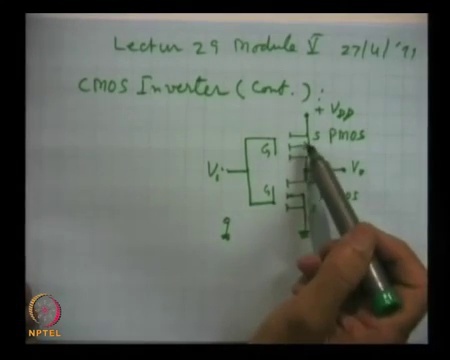 Lectur 29 Module V 27/4/'99
CMOS Inverter (Cont.) :
+ VDD
S PMOS
G
Vi
Vo
G
NPTEL